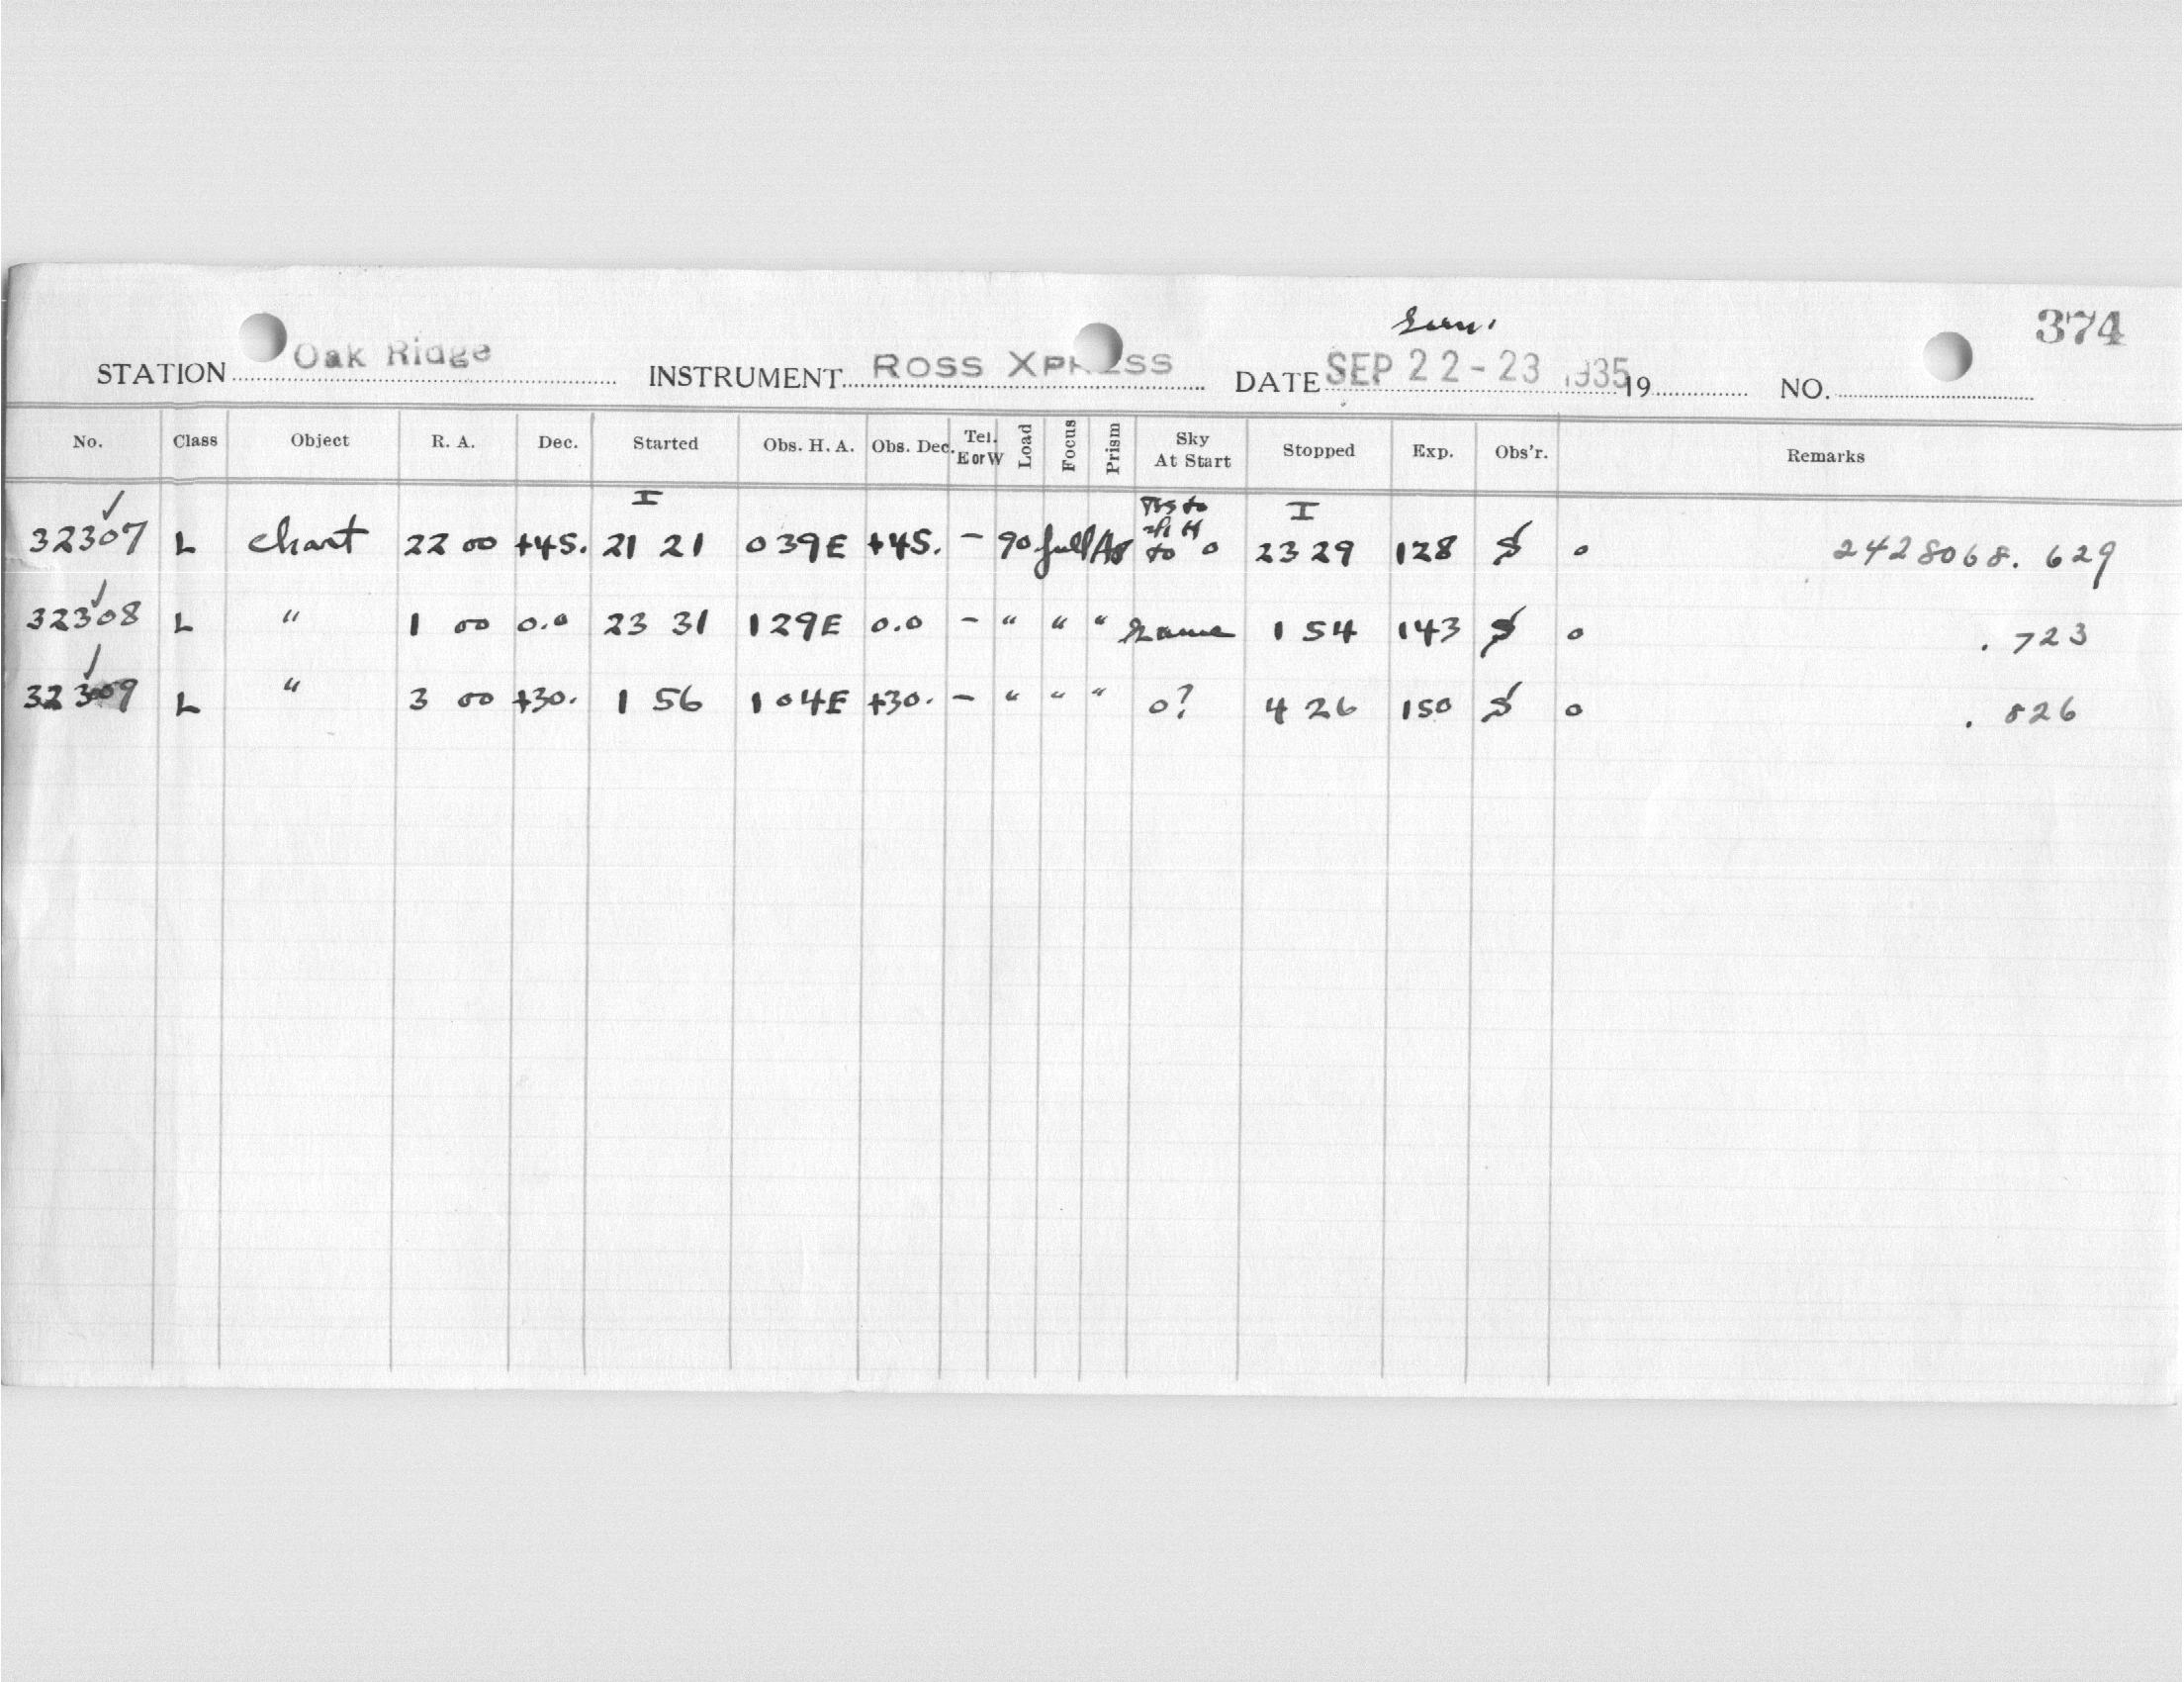 Sun.
374
STATION Oak Ridge INSTRUMENT ROSS XPRESS DATE SEP 22-23 1935 19 NO.
No. Class Object R. A. Dec. Started Obs. H. A. Obs. Dec. Tel. E or W Load Focus Prism Sky At Start Stopped Exp. Obs'r. Remarks
I I
32307 ✓ L chart 22 00 +45. 21 21 0 39E +45. – 90 full to 0 23 29 128 S 0 2428068.629
32308 ✓ L " 1 00 0.0 23 31 1 29E 0.0 – " " " same 1 54 143 S 0 .723
32309 ✓ L " 3 00 +30. 1 56 1 04E +30. – " " " 0? 4 26 150 S 0 .826